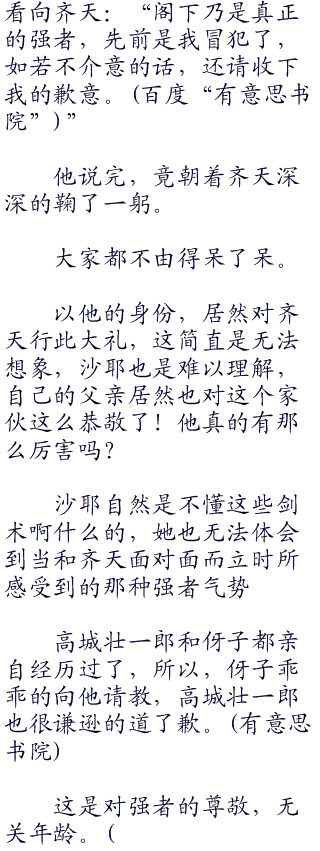 看向齐天：“阁下乃是真正
的强者，先前是我冒犯了，
如若不介意的话，还请收下
我的歉意。(百度“有意思书
院”)”
他说完，竟朝着齐天深
深的鞠了一躬。
大家都不由得呆了呆。
以他的身份，居然对齐
天行此大礼，这简直是无法
想象，沙耶也是难以理解，
自己的父亲居然也对这个家
伙这么恭敬了！他真的有那
么厉害吗？
沙耶自然是不懂这些剑
术啊什么的，她也无法体会
到当和齐天面对面而立时所
感受到的那种强者气势
高城壮一郎和伢子都亲
自经历过了，所以，伢子乖
乖的向他请教，高城壮一郎
也很谦逊的道了歉。(有意思
书院)
这是对强者的尊敬，无
关年龄。(